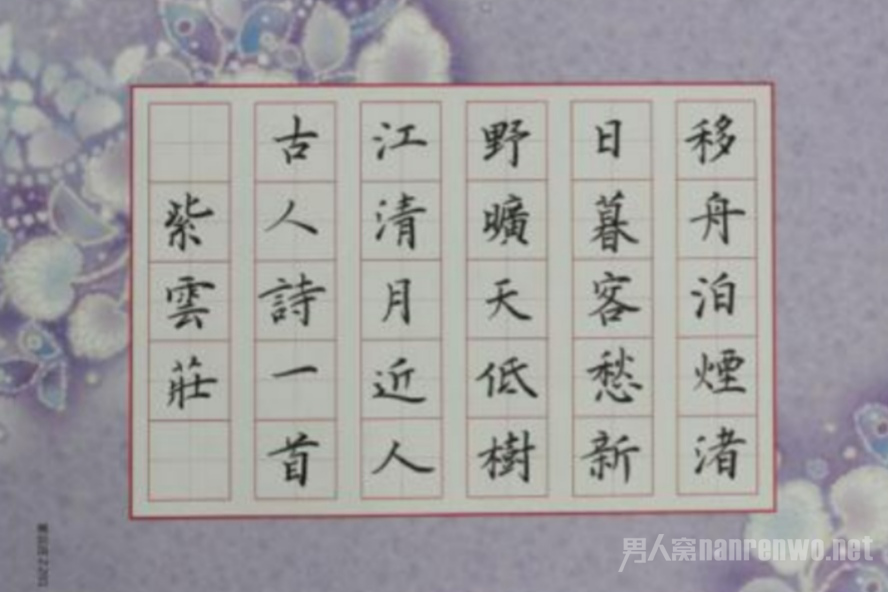 移舟泊煙渚
日暮客愁新
野曠天低樹
江清月近人
古人詩一首
紫雲莊
男人窝nanrenwo.net